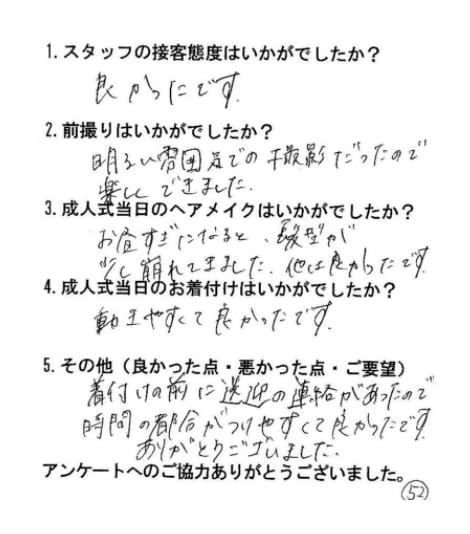 1. スタッフの接客態度はいかがでしたか？
良かったです。
2. 前撮りはいかがでしたか？
明るい雰囲気での撮影だったので
楽しくできました。
3. 成人式当日のヘアメイクはいかがでしたか？
お昼すぎになると、髪型が
少し崩れてきました。他は良かったです。
4. 成人式当日のお着付けはいかがでしたか？
動きやすくて良かったです。
5. その他（良かった点・悪かった点・ご要望）
着付けの前に送迎の連絡があったので
時間の都合がつけやすくて良かったです。
ありがとうございました。
アンケートへのご協力ありがとうございました。
52